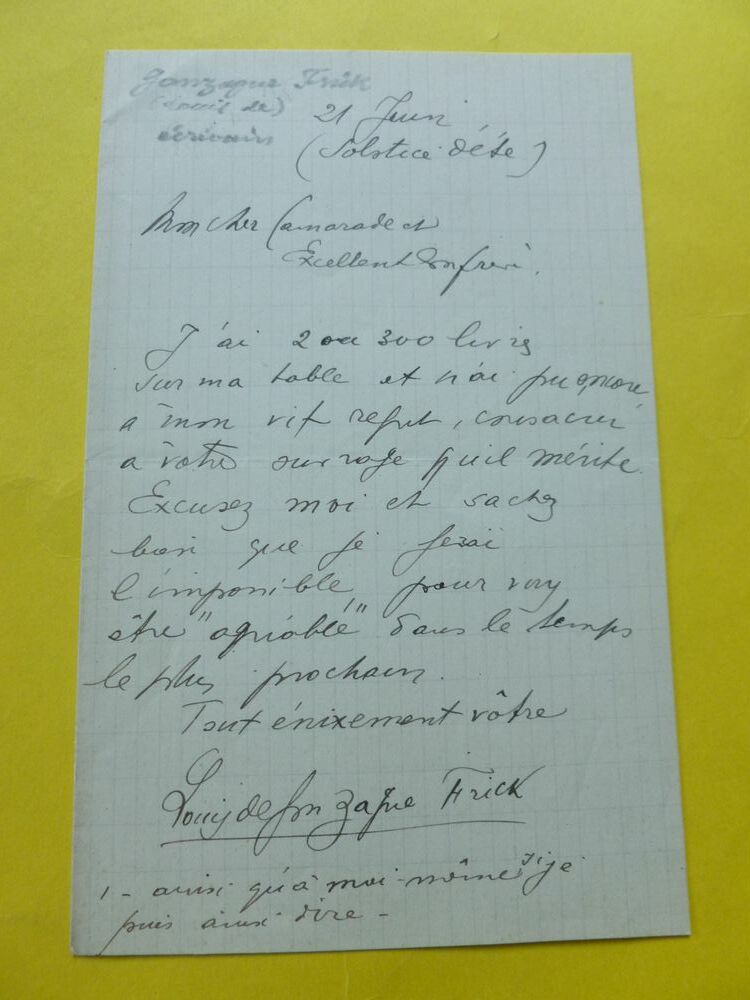 Gonzague Frick
(Louis de)
écrivain
21 Juin
(Solstice d'été)
Mon cher Camarade et
Excellent Confrère,
J'ai 2 ou 300 livres
sur ma table et n'ai pu encore
à mon vif regret, consacrer
à votre ouvrage qu'il mérite.
Excusez moi et sachez
bien que je ferai
l'impossible pour vous
être "agréable" dans le temps
le plus prochain.
Tout énixement vôtre
Louis de Gonzague Frick
1 - ainsi qu'à moi-même si je
puis ainsi dire -